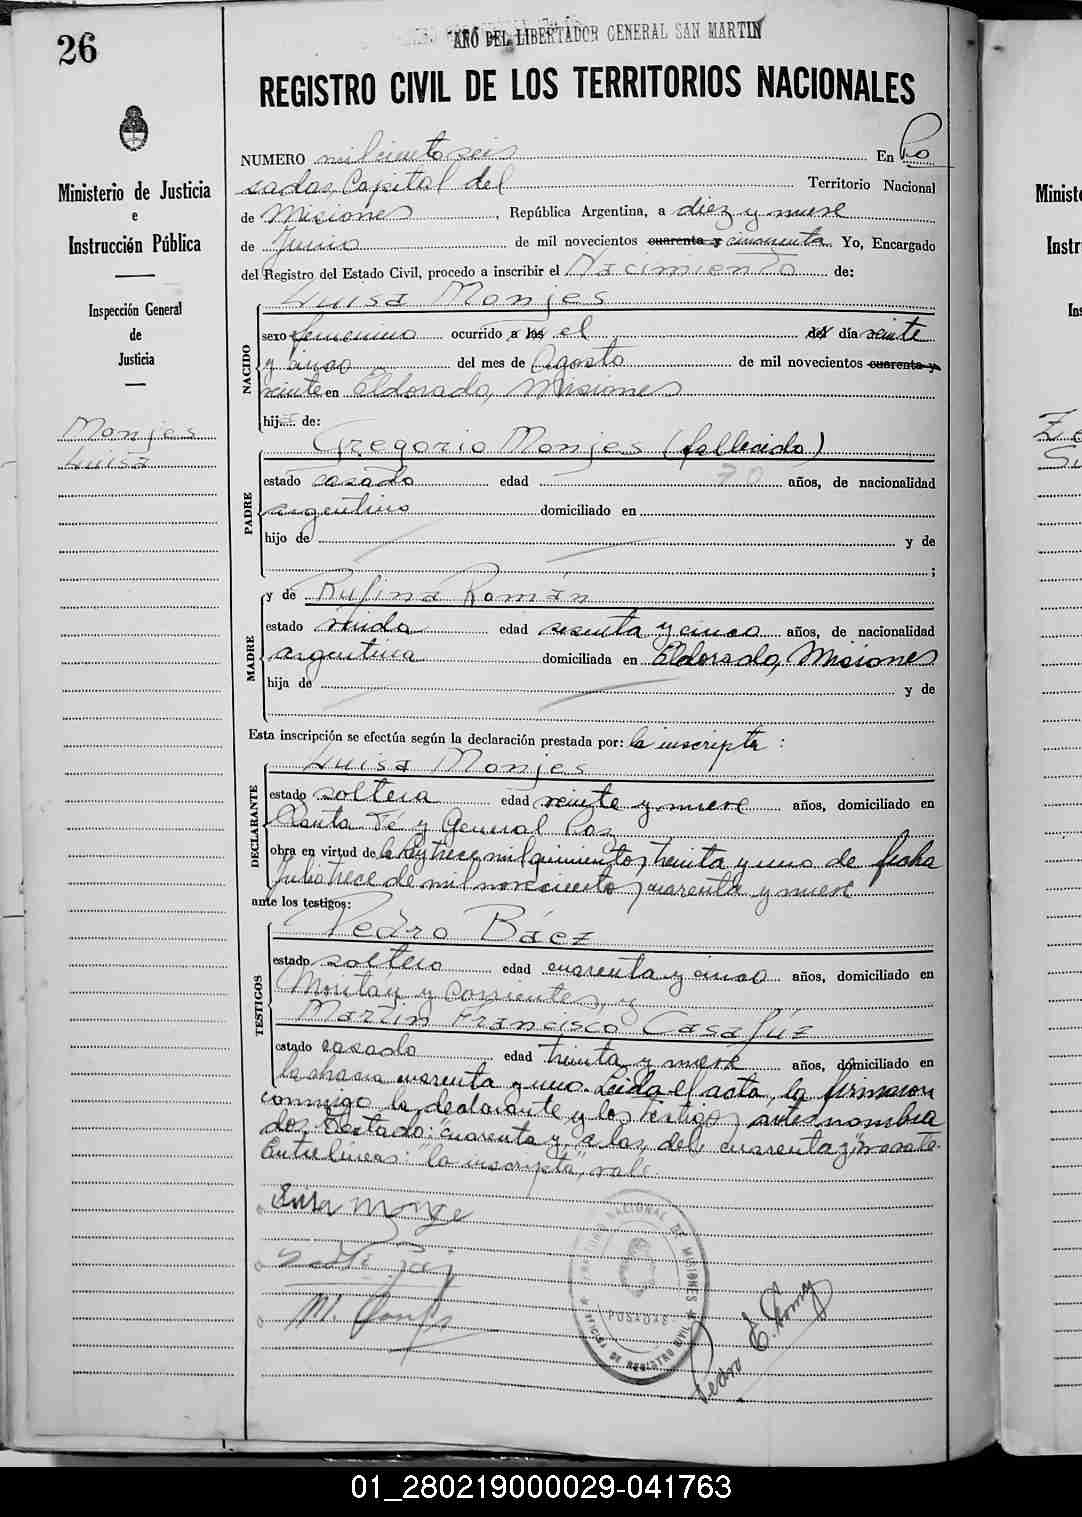 26
AÑO DEL LIBERTADOR GENERAL SAN MARTIN
REGISTRO CIVIL DE LOS TERRITORIOS NACIONALES
Ministerio de Justicia
e
Instrucción Pública
Inspección General
de
Justicia
Monjes
Luisa
NUMERO mil ciento seis En Po
sadas, Capital del Territorio Nacional
de Misiones, República Argentina, a diez y nueve
de Junio de mil novecientos cuarenta y cincuenta Yo, Encargado
del Registro del Estado Civil, procedo a inscribir el Nacimiento de:
NACIDO
Luisa Monjes
sexo femenino ocurrido a las el del día veinte
y cinco del mes de Agosto de mil novecientos cuarenta y
veinte en Eldorado, Misiones
hija de:
PADRE
Gregorio Monjes (fallecido)
estado casado edad 70 años, de nacionalidad
argentino domiciliado en
hijo de y de
;
MADRE
y de Rufina Román
estado viuda edad sesenta y cinco años, de nacionalidad
argentina domiciliada en Eldorado, Misiones
hija de y de
Esta inscripción se efectúa según la declaración prestada por: la inscripta :
DECLARANTE
Luisa Monjes
estado soltera edad veinte y nueve años, domiciliado en
Santa Fé y General Paz
obra en virtud de la Ley trece mil quinientos treinta y uno de fecha
Julio trece de mil novecientos cuarenta y nueve
ante los testigos:
TESTIGOS
Pedro Báez
estado soltero edad cuarenta y cinco años, domiciliado en
y Corrientes, y
Martin Francisco Casafúz
estado casado edad treinta y nueve años, domiciliado en
la chacra cuarenta y uno. Leida el acta, la firmaron
conmigo la declarante y los testigos antes nombra
dos. Testado: "cuarenta y", "a las, del, cuarenta y" no vale.
Entrelineas: "la inscripta", vale.
Luisa Monge
POSADAS
OFICINA DE REGISTRO CIVIL
NACIONAL DE MISIONES
Pedro E.
Minist
Instr
Ins
01_280219000029-041763